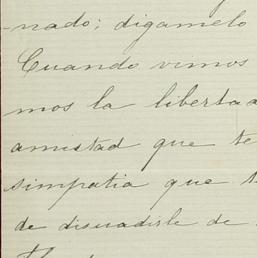 -nado; digamelo
Cuando vimos
mos la libertad
amistad que te
simpatia que t
de disuadirle de